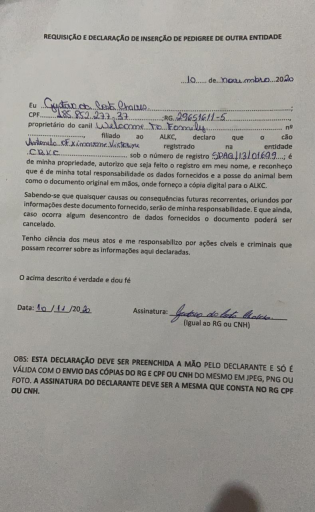 REQUISIÇÃO E DECLARAÇÃO DE INSERÇÃO DE PEDIGREE DE OUTRA ENTIDADE
10 de novembro 2020
Eu
CPF RG 29651611-5
proprietário do canil Welcome To Family nº
, filiado ao ALKC, declaro que o cão
registrado na entidade
CBKC sob o número de registro é
de minha propriedade, autorizo que seja feito o registro em meu nome, e reconheço
que é de minha total responsabilidade os dados fornecidos e a posse do animal bem
como o documento original em mãos, onde forneço a cópia digital para o ALKC.
Sabendo-se que quaisquer causas ou consequências futuras recorrentes, oriundos por
informações deste documento fornecido, serão de minha responsabilidade. E que ainda,
caso ocorra algum desencontro de dados fornecidos o documento poderá ser
cancelado.
Tenho ciência dos meus atos e me responsabilizo por ações cíveis e criminais que
possam recorrer sobre as informações aqui declaradas.
O acima descrito é verdade e dou fé
Data: 10 / 11 /2020 Assinatura:
(igual ao RG ou CNH)
OBS: ESTA DECLARAÇÃO DEVE SER PREENCHIDA A MÃO PELO DECLARANTE E SÓ É
VÁLIDA COM O ENVIO DAS CÓPIAS DO RG E CPF OU CNH DO MESMO EM JPEG, PNG OU
FOTO. A ASSINATURA DO DECLARANTE DEVE SER A MESMA QUE CONSTA NO RG CPF
OU CNH.